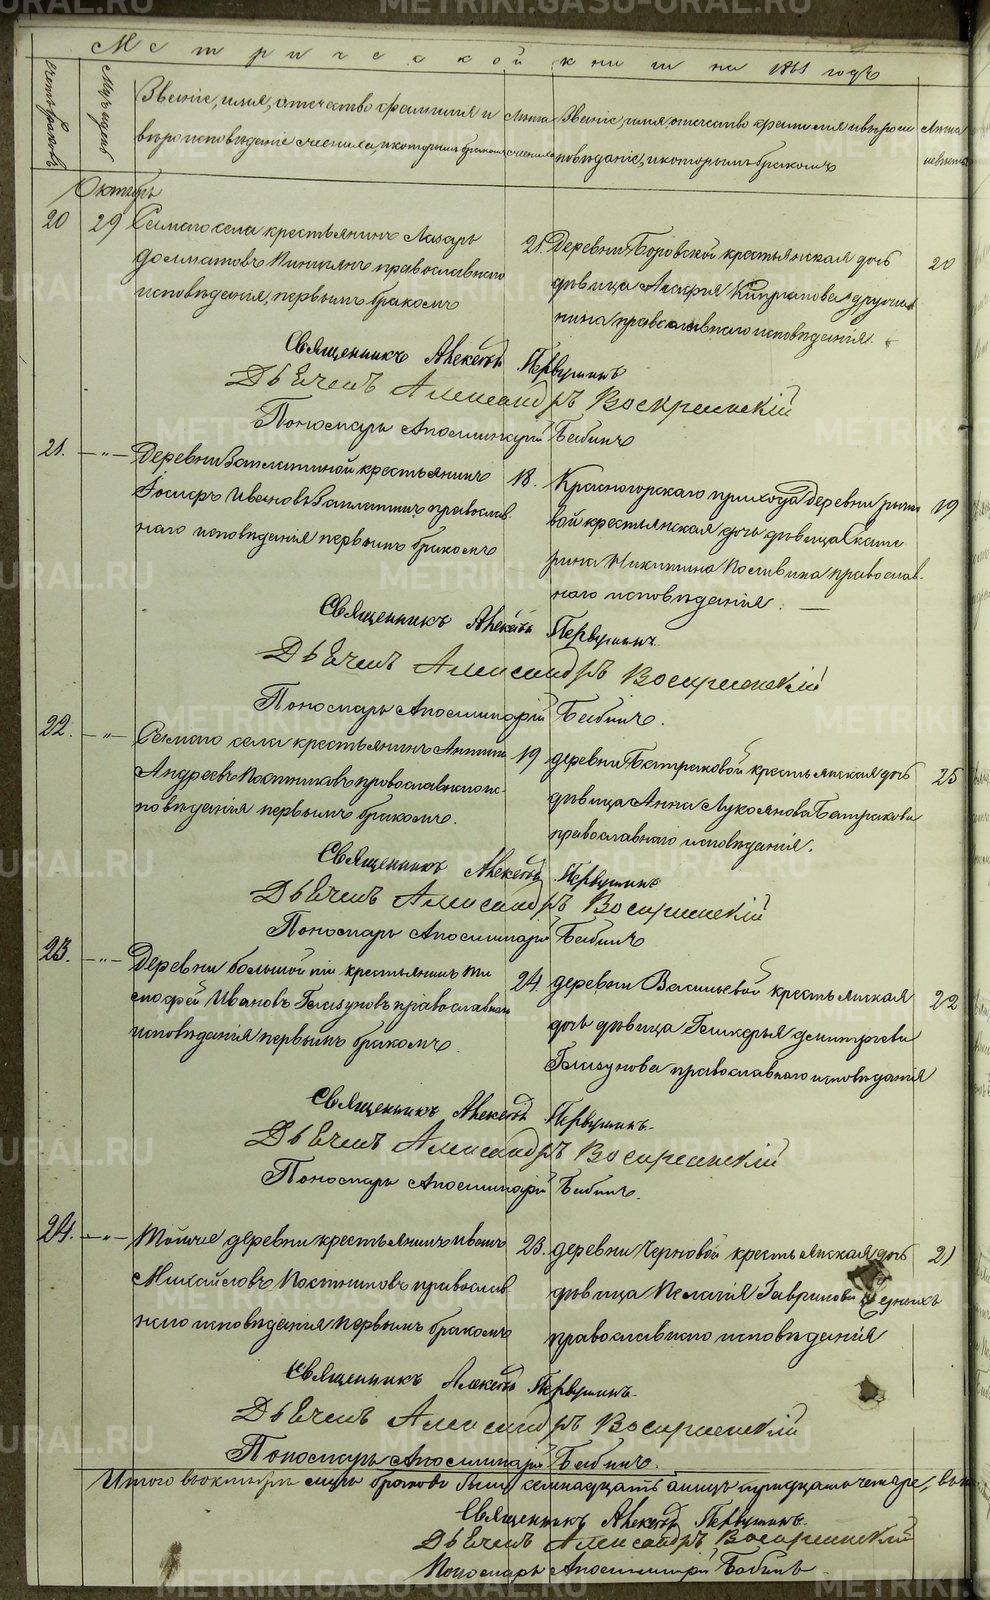 METRIKI.GASO-URAL.RU
Метрической книги на 1861 годъ
Счетъ браковъ
Мѣсяцъ
Званіе, имя, отчество, фамилія и
вѣроисповѣданіе жениха, и которымъ бракомъ
Лѣта
жениха
Званіе, имя, отчество, фамилія и вѣроис
повѣданіе, и которымъ бракомъ
Лѣта
невѣсты
Октябрь
20 29 Сего села крестьянинъ Лазарь
Долматовъ православнаго
исповѣданія, первымъ бракомъ
21. деревни Боровской крестьянская дочь
дѣвица Кипріанова
православнаго исповѣданія.
20
Священникъ Алексѣй Первушинъ
Дьячекъ Александръ Воскресенскій
Пономарь Аполлинарій Бабинъ
21. —"— Деревни Заплатиной крестьянинъ
Ивановъ Заплатинъ православ
наго исповѣданія первымъ бракомъ
18. Красногорскаго прихода деревни
вой крестьянская дочь дѣвица Екате
рина Никитина православ-
наго исповѣданія.
19
Священникъ Алексѣй Первушинъ.
Дьячекъ Александръ Воскресенскій
Пономарь Аполлинарій Бабинъ.
22. —"— села крестьянинъ
Андреевъ Постниковъ православнаго ис-
повѣданія первымъ бракомъ.
19 деревни Батраковой крестьянская дочь
дѣвица Анна Лукоянова Батракова
православнаго исповѣданія.
25
Священникъ Алексѣй Первушинъ
Дьячекъ Александръ Воскресенскій
Пономарь Аполлинарій Бабинъ
23. —"— Деревни крестьянинъ Ти
мофей Ивановъ Голизуновъ православнаго
исповѣданія первымъ бракомъ.
24 деревни Васильевой крестьянская
дочь дѣвица Гликерья Димитріева
Голизунова православнаго исповѣданія
22
Священникъ Алексѣй Первушинъ.
Дьячекъ Александръ Воскресенскій
Пономарь Аполлинарій Бабинъ.
24. —"— Той же деревни крестьянинъ Иванъ
Михайловъ Постниковъ православ
наго исповѣданія первымъ бракомъ
23. деревни Черновой крестьянская дочь
дѣвица Пелагія Гаврилова Черныхъ
православнаго исповѣданія
21
Священникъ Алексѣй Первушинъ.
Дьячекъ Александръ Воскресенскій
Пономарь Аполлинарій Бабинъ.
Итого въ октябрѣ браковъ было семнадцать а лицъ тридцать четыре,
Священникъ Алексѣй Первушинъ.
Дьячекъ Александръ Воскресенскій
Пономарь Аполлинарій Бабинъ